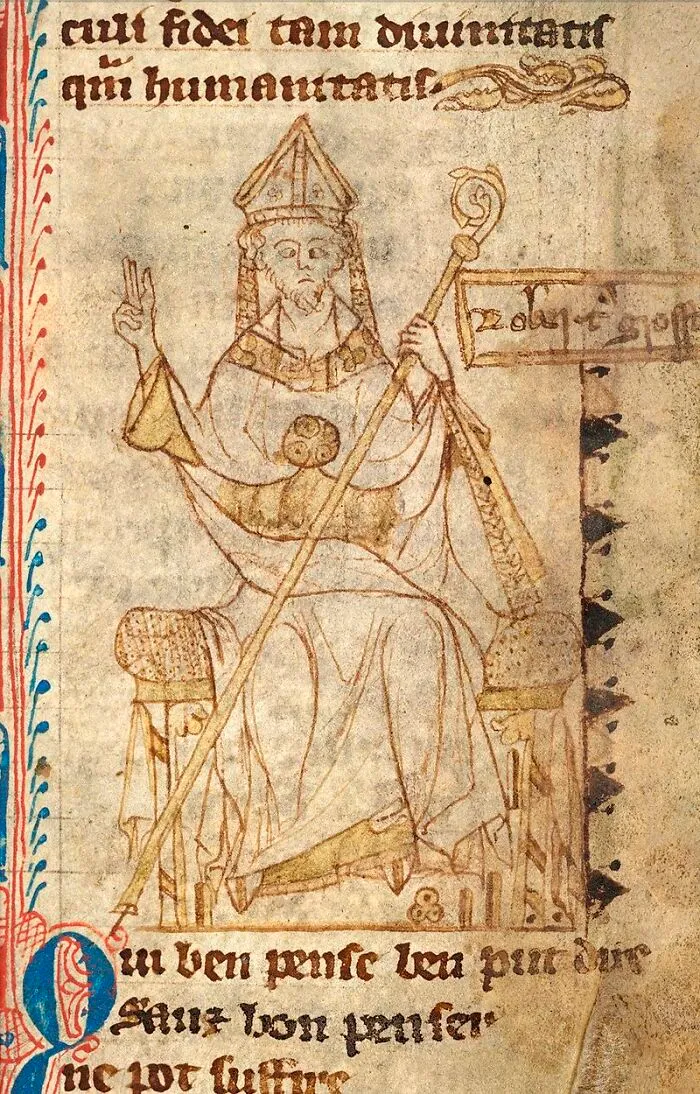 culi fidei tam diuinitatis
qm̄ humanitatis
Robertꝰ gross
Qui ben pense ben put dire
Sanz bon penser
ne pot suffire